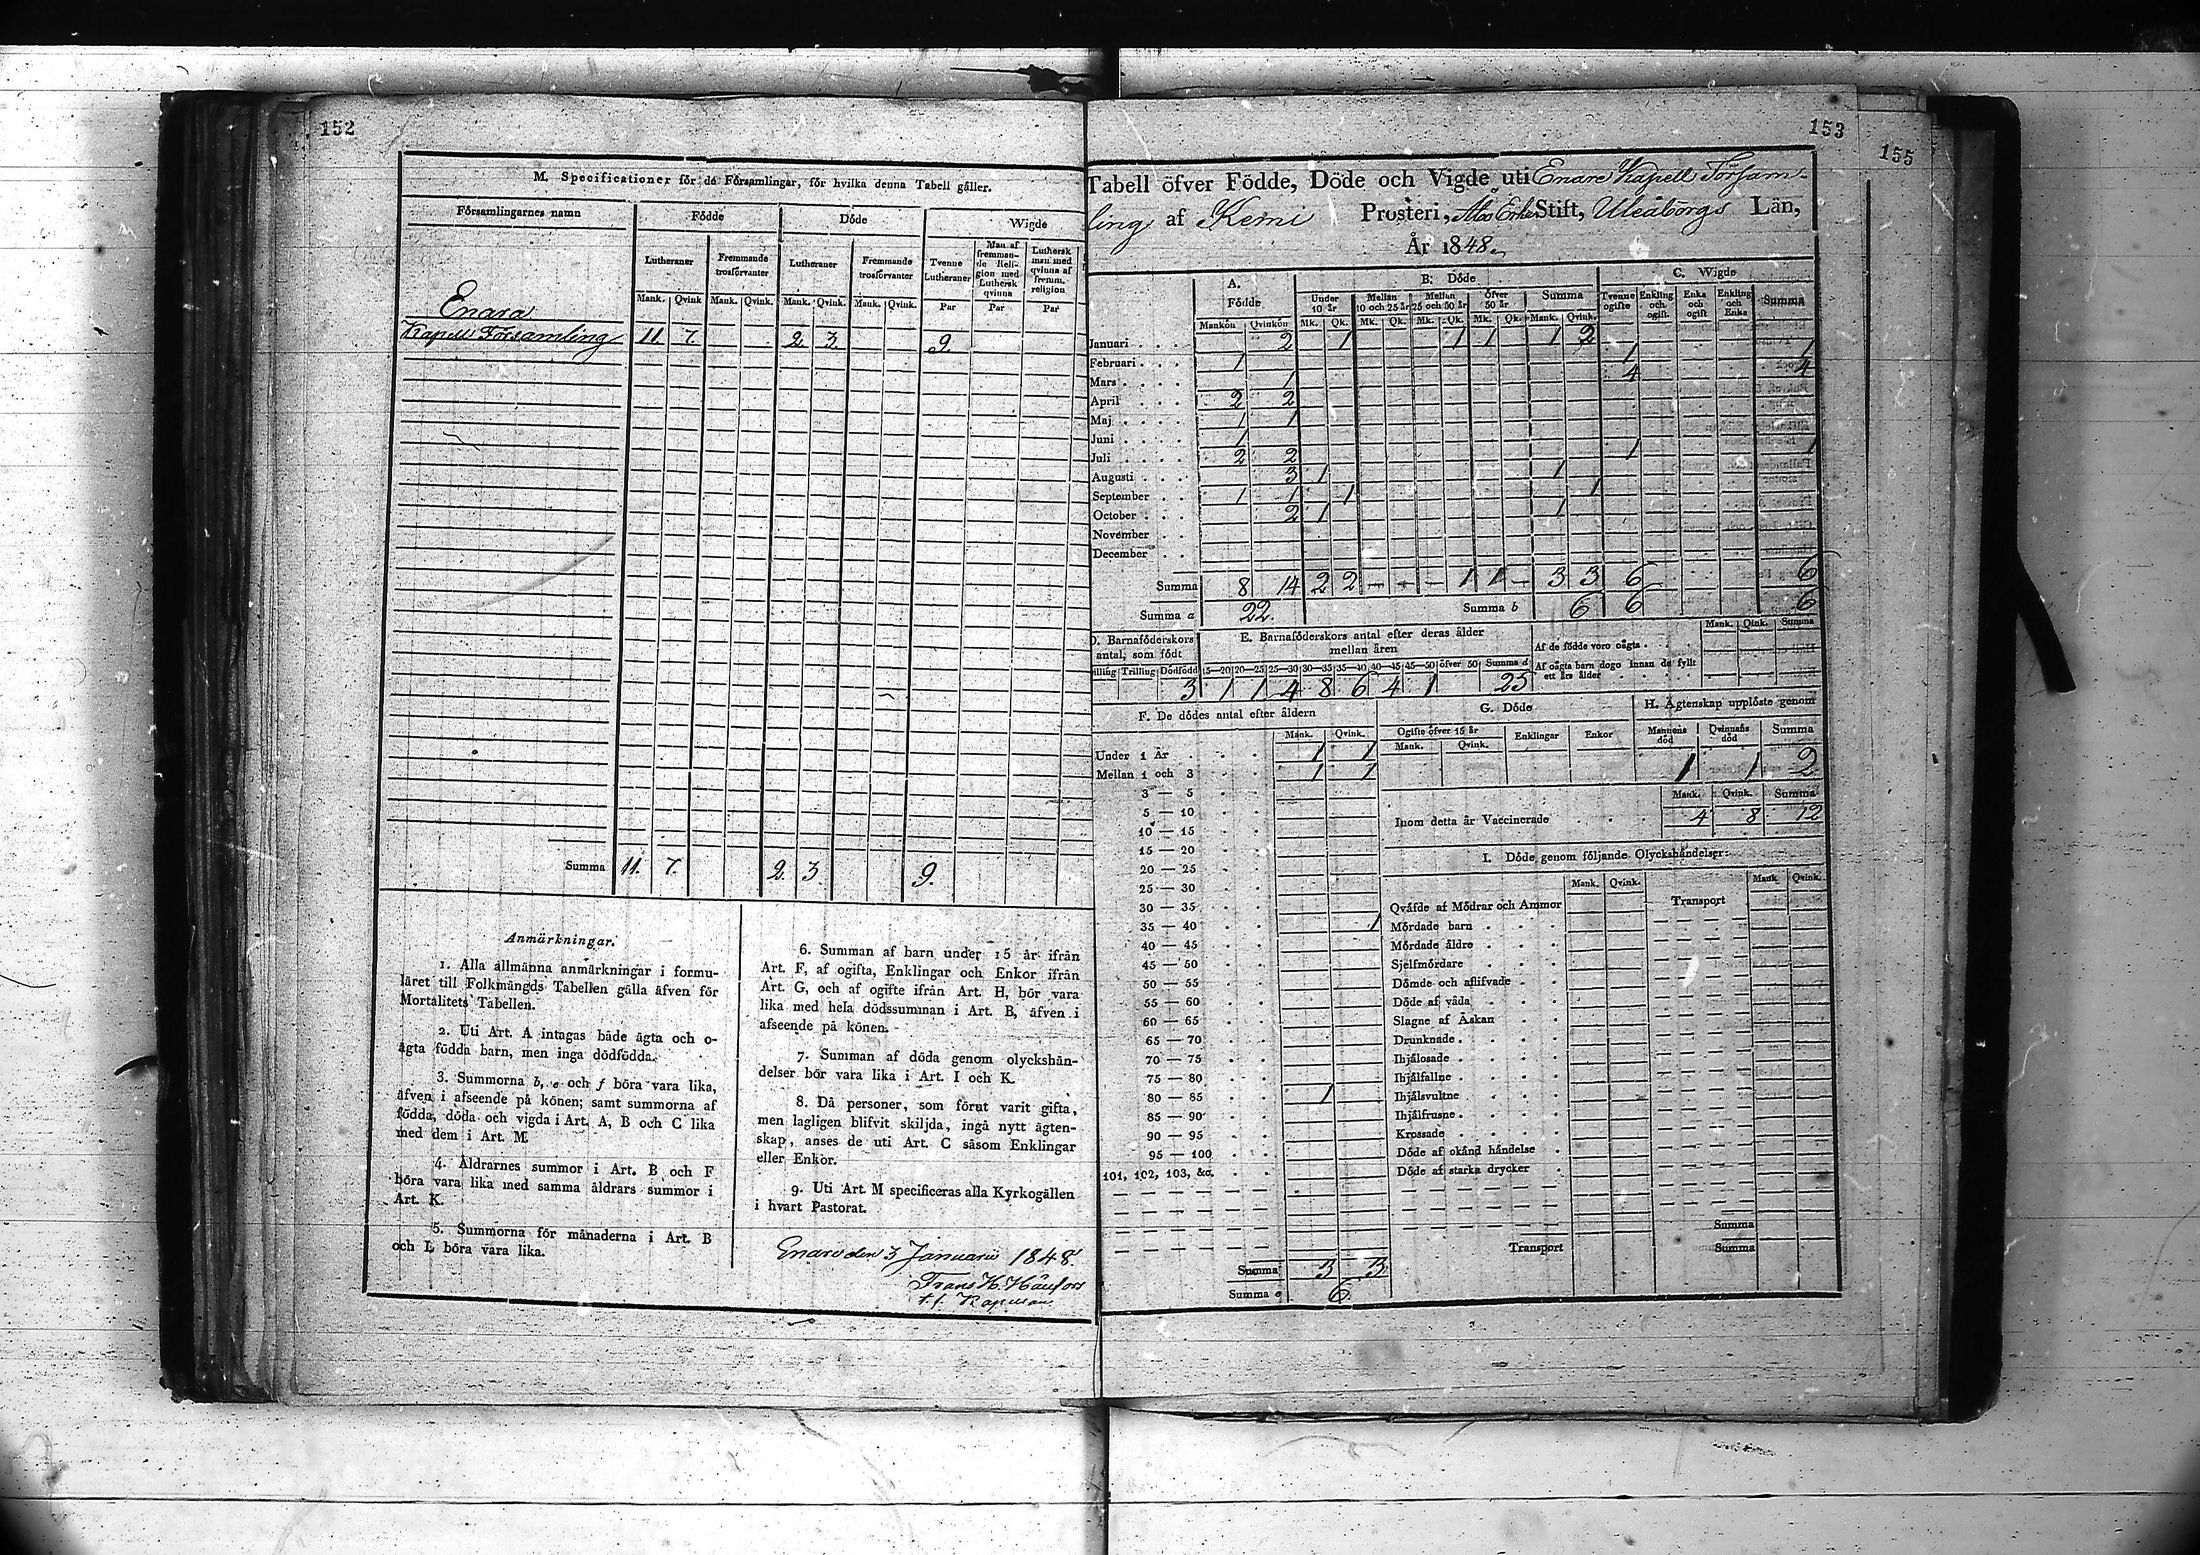 152
M. Specificationer för de Församlingar, för hvilka denna Tabell gäller.
Församlingarnes namn Födde Döde Wigde
Lutheraner Fremmande trosförvanter Lutheraner Fremmande trosförvanter Tvenne Lutheraner Man af fremmande Religion med Luthersk qvinna Luthersk man med qvinna af fremm. religion
Mank. Qvink. Mank. Qvink. Mank. Qvink. Mank. Qvink. Par Par Par
Enara
Kapell Församling 11. 7. 2. 3. 9.
Summa 11. 7. 2. 3. 9.
Anmärkningar.
1. Alla allmänna anmärkningar i formu-
läret till Folkmängds Tabellen gälla äfven för
Mortalitets Tabellen.
2. Uti Art. A intagas både ägta och o-
ägta födda barn, men inga dödfödda.
3. Summorna b, e och f böra vara lika,
äfven i afseende på könen; samt summorna af
födda, döda och vigda i Art. A, B och C lika
med dem i Art. M.
4. Åldrarnes summor i Art. B och F
böra vara lika med samma åldrars summor i
Art. K.
5. Summorna för månaderna i Art. B
och L böra vara lika.
6. Summan af barn under 15 år ifrån
Art. F, af ogifta, Enklingar och Enkor ifrån
Art. G, och af ogifte ifrån Art. H, bör vara
lika med hela dödssumman i Art. B, äfven i
afseende på könen.
7. Summan af döda genom olyckshän-
delser bör vara lika i Art. I och K.
8. Då personer, som förut varit gifta,
men lagligen blifvit skiljda, ingå nytt ägten-
skap, anses de uti Art. C såsom Enklingar
eller Enkor.
9. Uti Art. M specificeras alla Kyrkogällen
i hvart Pastorat.
Enare den 3 Januarii 1848.
t.f. Kapellan
153
155
Tabell öfver Födde, Döde och Vigde uti Enare Kapell Försam-
ling af Kemi Prosteri, Åbo Erke Stift, Uleåborgs Län,
År 1848.
A. Födde B. Döde C. Wigde
Under 10 år Mellan 10 och 25 år Mellan 25 och 50 år Öfver 50 år Summa Tvenne ogifte Enkling och ogift. Enka och ogift Enkling och Enka Summa
Mankön Qvinkön Mk. Qk. Mk. Qk. Mk. Qk. Mk. Qk. Mank. Qvink.
Januari 2 1 1 1 1 2
Februari 1 1 1
Mars 1 4 4
April 2 2
Maj 1 1
Juni 1
Juli 2 2 1 1
Augusti 3 1 1
September 1 1 1 1
October 2 1 1
November
December
Summa 8 14 2 2 - - - 1 1 - 3 3 6 6
Summa a 22. Summa b 6 6 6
D. Barnaföderskors antal, som födt
E. Barnaföderskors antal efter deras ålder mellan åren
Mank. Qink. Summa
Af de födde voro oägta
Af oägta barn dogo innan de fyllt ett års ålder
illing Trilling Dödfödd 15—20 20—25 25—30 30—35 35—40 40—45 45—50 öfver 50 Summa d
3 1 1 4 8 6 4 1 25
F. De dödes antal efter åldern
Mank. Qvink.
Under 1 År 1 1
Mellan 1 och 3 1 1
3 — 5
5 — 10
10 — 15
15 — 20
20 — 25
25 — 30
30 — 35
35 — 40 1
40 — 45
45 — 50
50 — 55
55 — 60
60 — 65
65 — 70
70 — 75
75 — 80
80 — 85 1
85 — 90
90 — 95
95 — 100
101, 102, 103, &c.
Summa 3 3
Summa e 6.
G. Döde
Ogifte öfver 15 år Enklingar Enkor
Mank. Qvink.
H. Ägtenskap upplöste genom
Mannens död Qvinnans död Summa
1 1 2
Mank. Qvink. Summa
Inom detta år Vaccinerade 4 8 12
I. Döde genom följande Olyckshändelser:
Mank. Qvink. Mank. Qvink.
Qväfde af Mödrar och Ammor Transport
Mördade barn
Mördade äldre
Sjelfmördare
Dömde och aflifvade
Döde af våda
Slagne af Åskan
Drunknade
Ihjälosade
Ihjälfallne
Ihjälsvultne
Ihjälfrusne
Krossade
Döde af okänd händelse
Döde af starka drycker
Summa
Transport Summa